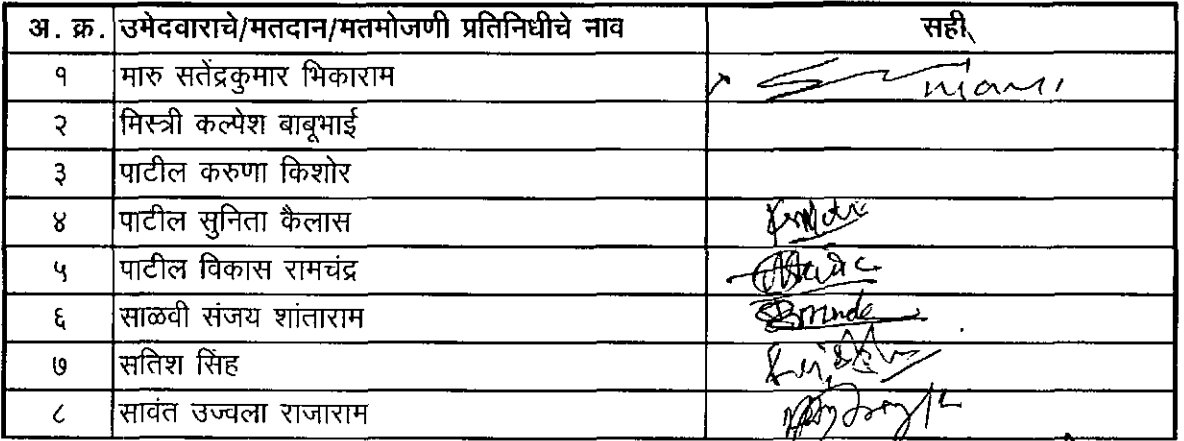 अ. क्र. उमेदवाराचे/मतदान/मतमोजणी प्रतिनिधीचे नाव सही
१ मारु सतेंद्रकुमार भिकाराम
२ मिस्त्री कल्पेश बाबूभाई
३ पाटील करुणा किशोर
४ पाटील सुनिता कैलास
५ पाटील विकास रामचंद्र
६ साळवी संजय शांताराम
७ सतिश सिंह
८ सावंत उज्वला राजाराम